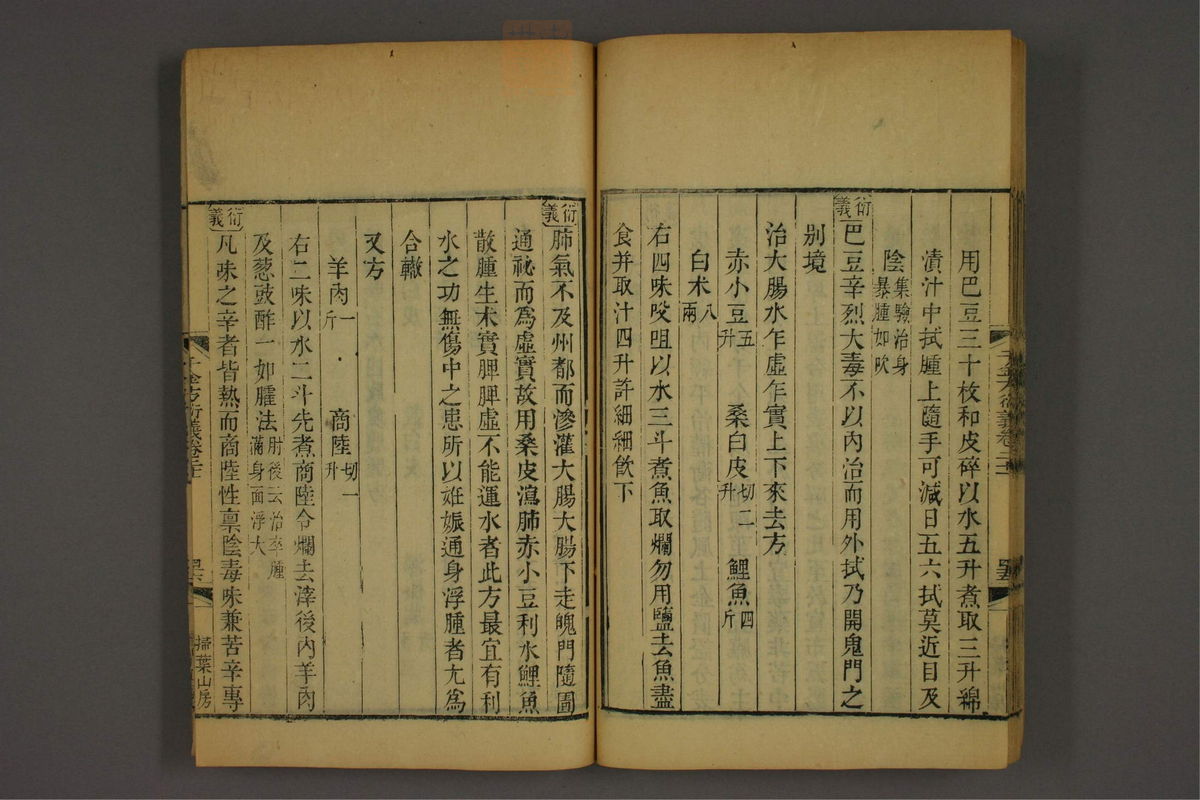 用巴豆三十枚和皮碎以水五升煮取三升綿
漬汁中拭腫上隨手可減日五六拭莫近目及
陰集驗治身暴腫如吹
衍義巴豆辛烈大毒不以內治而用外拭乃開鬼門之
別境
治大腸水乍虛乍實上下來去方
赤小豆五升 桑白皮切二升 鯉魚四斤
白术八兩
右四味㕮咀以水三斗煮魚取爛勿用鹽去魚盡
食并取汁四升許細細飲下
千金方衍義卷二十一
衍義肺氣不及州都而滲灌大腸大腸下走魄門隨圊
通祕而為虛實故用桑皮瀉肺赤小豆利水鯉魚
散腫生术實脾脾虛不能運水者此方最宜有利
水之功無傷中之患所以妊娠通身浮腫者尤為
合轍
又方
羊肉一斤 商陸切一升
右二味以水二斗先煮商陸令爛去滓後內羊肉
及葱豉酢一如臛法肘後云治卒腫滿身面浮大
衍義凡味之辛者皆熱而商陸性稟陰毒味兼苦辛專
千金方衍義卷二十一
掃葉山房